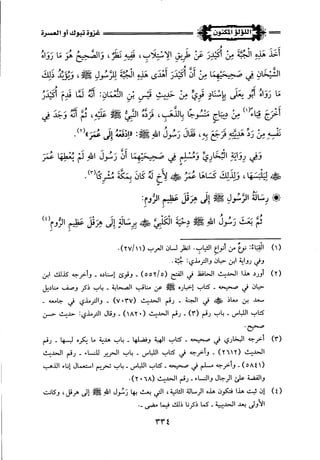 اللؤلؤ المكنون
غزوة تبوك أو العسرة
أخذ هذه الجبة من أكيدر عن طريق الاستلاب، ففيه نظر، والصحيح هو ما رواه
الشيخان في صحيحيهما من أن أكيدر أهدى هذه الجبة للرسول ﷺ، ويؤيد ذلك
ما رواه أبو يعلى بإسناد قوي من حديث قيس بن النعمان: أنه لما قدم أكيدر
أخرج قباء(١) من ديباج منسوجا بالذهب، فرده النبي ﷺ عليه، ثم إنه وجد في
نفسه من رد هديته فرجع به، فقال رسول الله ﷺ: «ادفعه إلى عمر»(٢).
وفي رواية البخاري ومسلم في صحيحيهما أن رسول الله لم يعطها عمر
ﷺ ليلبسها، ولذلك كساها عمر ﷺ لأخ له بمكة كان مشركا(٣).
رسالة الرسول ﷺ إلى هرقل عظيم الروم:
ثم بعث رسول الله ﷺ دحية الكلبي ﷺ برسالة إلى هرقل عظيم الروم(٤)
(١) القباء: نوع من أنواع الثياب. انظر لسان العرب (٢٧/١١).
وفي رواية ابن حبان والترمذي: جبة.
(٢) أورد هذا الحديث الحافظ في الفتح (٥٥٢/٥) وقوى إسناده - وأخرجه كذلك ابن
حبان في صحيحه - كتاب إخباره ﷺ عن مناقب الصحابة - باب ذكر وصف مناديل
سعد بن معاذ ﷺ في الجنة - رقم الحديث (٧٠٣٧) - والترمذي في جامعه -
كتاب اللباس - باب رقم (٣) - رقم الحديث (١٨٢٠) وقال الترمذي: حديث حسن
صحيح.
(٣) أخرجه البخاري في صحيحه - كتاب الهبة وفضلها - باب هدية ما يكره لبسها - رقم
الحديث (٢٦١٢) - وأخرجه في كتاب اللباس - باب الحرير للنساء - رقم الحديث
(٥٨٤١) - وأخرجه مسلم في صحيحه - كتاب اللباس - باب تحريم استعمال إناء الذهب
والفضة على الرجال والنساء - رقم الحديث (٢٠٦٨).
(٤) إن ثبت هذا فتكون هذه الرسالة الثانية، التي بعث بها رسول الله ﷺ إلى هرقل، وكانت
الأولى بعد الحديبية - كما ذكرنا ذلك فيما مضى -.
٣٣٤